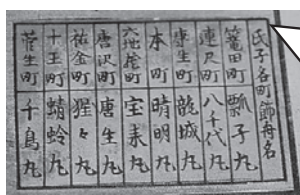 氏子各町飾舟名
篭田町 瓢子丸
連尺町 八千代丸
康生町 龍城丸
本町 晴明丸
六地蔵町 宝来丸
唐沢町 唐生丸
祐金町 猩々丸
十王町 蜻蛉丸
菅生町 千鳥丸